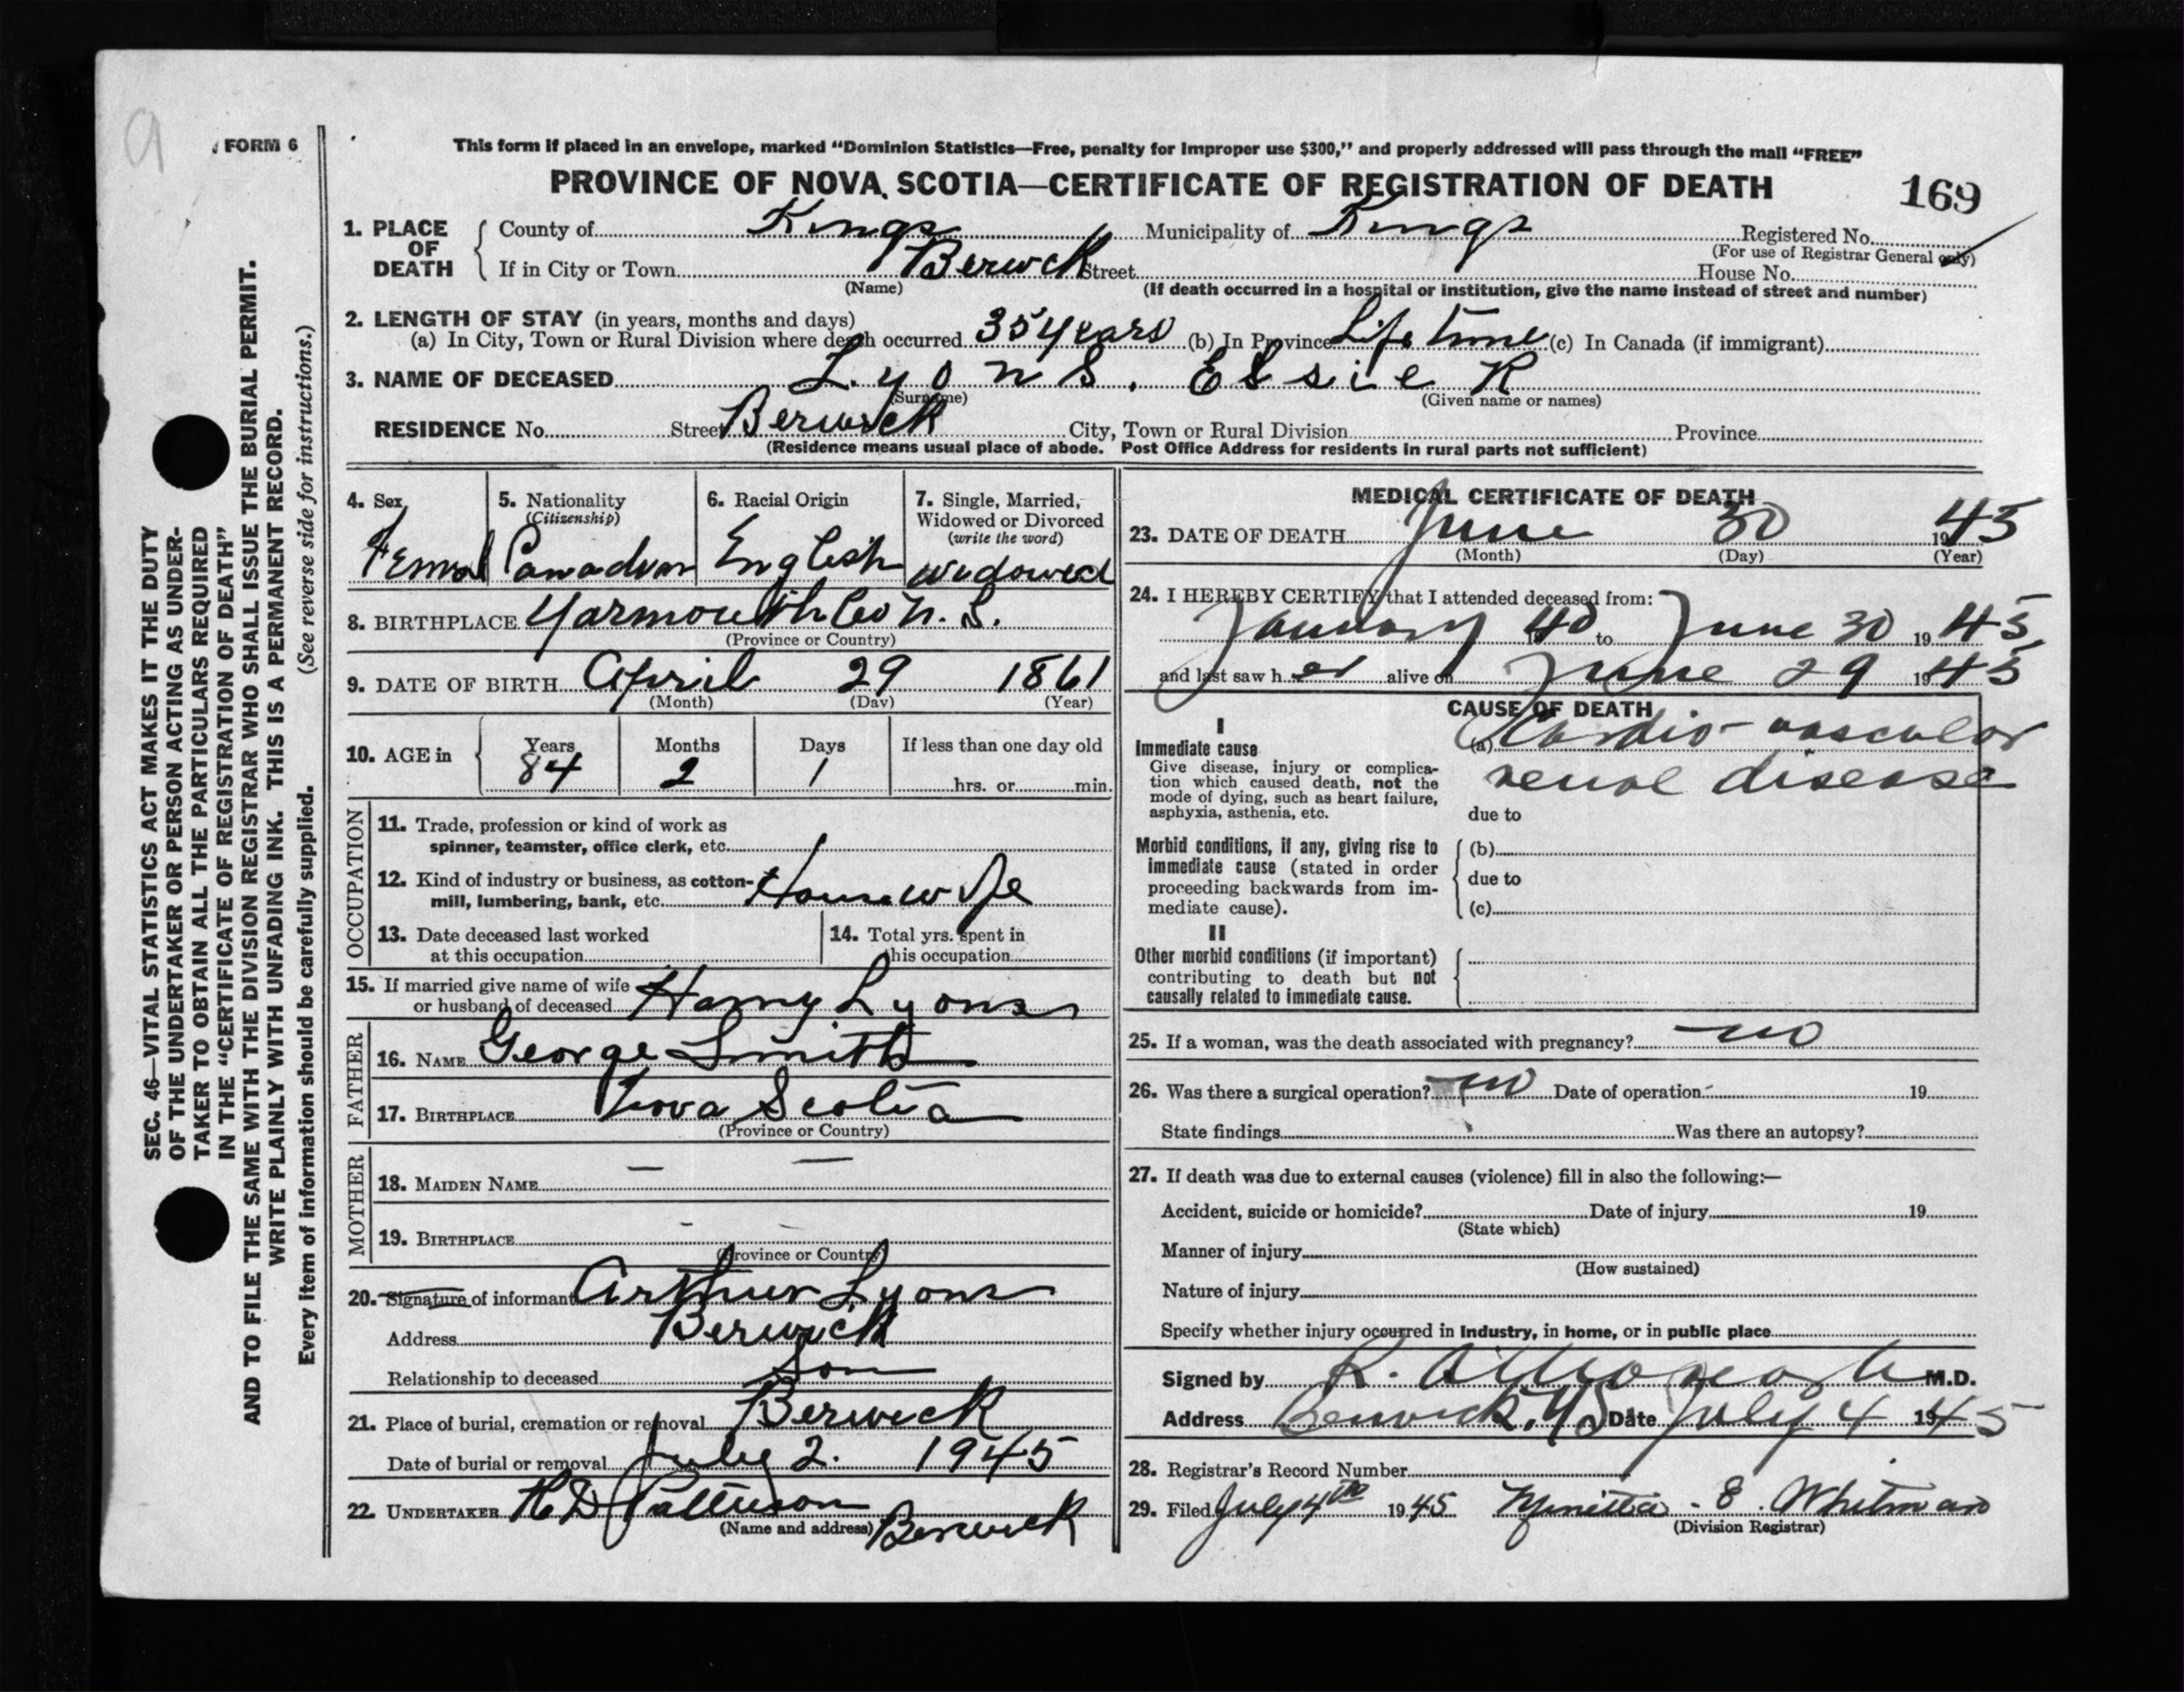 FORM 6
This form if placed in an envelope, marked “Dominion Statistics—Free, penalty for improper use $300,” and properly addressed will pass through the mail “FREE”
PROVINCE OF NOVA SCOTIA—CERTIFICATE OF REGISTRATION OF DEATH
169
1. PLACE OF DEATH
County of Kings Municipality of Kings Registered No.
(For use of Registrar General only)
If in City or Town Berwick Street House No.
(Name) (If death occurred in a hospital or institution, give the name instead of street and number)
2. LENGTH OF STAY (in years, months and days)
(a) In City, Town or Rural Division where death occurred 35 years (b) In Province Life time (c) In Canada (if immigrant)
3. NAME OF DECEASED Lyons. Essie R
(Surname) (Given name or names)
RESIDENCE No. Street Berwick City, Town or Rural Division Province
(Residence means usual place of abode. Post Office Address for residents in rural parts not sufficient)
4. Sex
Femal
5. Nationality
(Citizenship)
Canadian
6. Racial Origin
English
7. Single, Married, Widowed or Divorced
(write the word)
widowed
8. BIRTHPLACE Yarmouth Co N. S.
(Province or Country)
9. DATE OF BIRTH April 29 1861
(Month) (Day) (Year)
10. AGE in
Years Months Days If less than one day old
84 2 1 hrs. or min.
OCCUPATION
11. Trade, profession or kind of work as
spinner, teamster, office clerk, etc.
12. Kind of industry or business, as cotton-
mill, lumbering, bank, etc. Housewife
13. Date deceased last worked
at this occupation
14. Total yrs. spent in
this occupation
15. If married give name of wife
or husband of deceased Harry Lyons
FATHER
16. NAME George Smith
17. BIRTHPLACE Nova Scotia
(Province or Country)
MOTHER
18. MAIDEN NAME — —
19. BIRTHPLACE - -
(Province or Country)
20. Signature of informant Arthur Lyons
Address Berwick
Relationship to deceased Son
21. Place of burial, cremation or removal Berwick
Date of burial or removal July 2. 1945
22. UNDERTAKER H D Patterson
(Name and address) Berwick
MEDICAL CERTIFICATE OF DEATH
23. DATE OF DEATH June 30 1945
(Month) (Day) (Year)
24. I HEREBY CERTIFY that I attended deceased from:
January 1940 to June 30 1945
and last saw her alive on June 29 1945
CAUSE OF DEATH
I
Immediate cause
Give disease, injury or complica-
tion which caused death, not the
mode of dying, such as heart failure,
asphyxia, asthenia, etc.
(a) Cardio-vascular
renal disease
due to
Morbid conditions, if any, giving rise to
immediate cause (stated in order
proceeding backwards from im-
mediate cause).
(b)
due to
(c)
II
Other morbid conditions (if important)
contributing to death but not
causally related to immediate cause.
25. If a woman, was the death associated with pregnancy? no
26. Was there a surgical operation? no Date of operation 19
State findings Was there an autopsy?
27. If death was due to external causes (violence) fill in also the following:—
Accident, suicide or homicide? Date of injury 19
(State which)
Manner of injury
(How sustained)
Nature of injury
Specify whether injury occurred in industry, in home, or in public place
Signed by R. M.D.
Address Berwick, N S Date July 4 1945
28. Registrar's Record Number
29. Filed July 4th 1945 E. Whitman
(Division Registrar)
SEC. 46—VITAL STATISTICS ACT MAKES IT THE DUTY
OF THE UNDERTAKER OR PERSON ACTING AS UNDER-
TAKER TO OBTAIN ALL THE PARTICULARS REQUIRED
IN THE “CERTIFICATE OF REGISTRATION OF DEATH”
AND TO FILE THE SAME WITH THE DIVISION REGISTRAR WHO SHALL ISSUE THE BURIAL PERMIT.
WRITE PLAINLY WITH UNFADING INK. THIS IS A PERMANENT RECORD.
Every item of information should be carefully supplied. (See reverse side for instructions.)